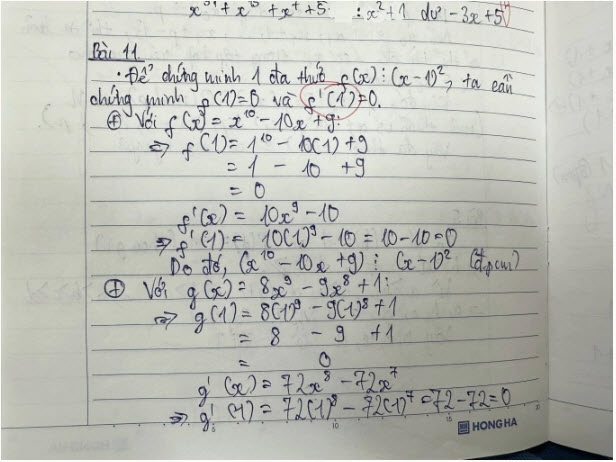 x³¹ + x¹⁵ + x⁴ + 5 : x² + 1 dư -3x + 5
Bài 11
• Để chứng minh 1 đa thức f(x) ⋮ (x-1)², ta cần
chứng minh f(1)=0 và f'(1)=0.
⊕ Với f(x) = x¹⁰ - 10x + 9:
=> f(1) = 1¹⁰ - 10(1) + 9
= 1 - 10 + 9
= 0
f'(x) = 10x⁹ - 10
=> f'(1) = 10(1)⁹ - 10 = 10 - 10 = 0
Do đó, (x¹⁰ - 10x + 9) ⋮ (x-1)² (đpcm)
⊕ Với g(x) = 8x⁹ - 9x⁸ + 1:
=> g(1) = 8(1)⁹ - 9(1)⁸ + 1
= 8 - 9 + 1
= 0
g'(x) = 72x⁸ - 72x⁷
=> g'(1) = 72(1)⁸ - 72(1)⁷ = 72 - 72 = 0
HONG HA